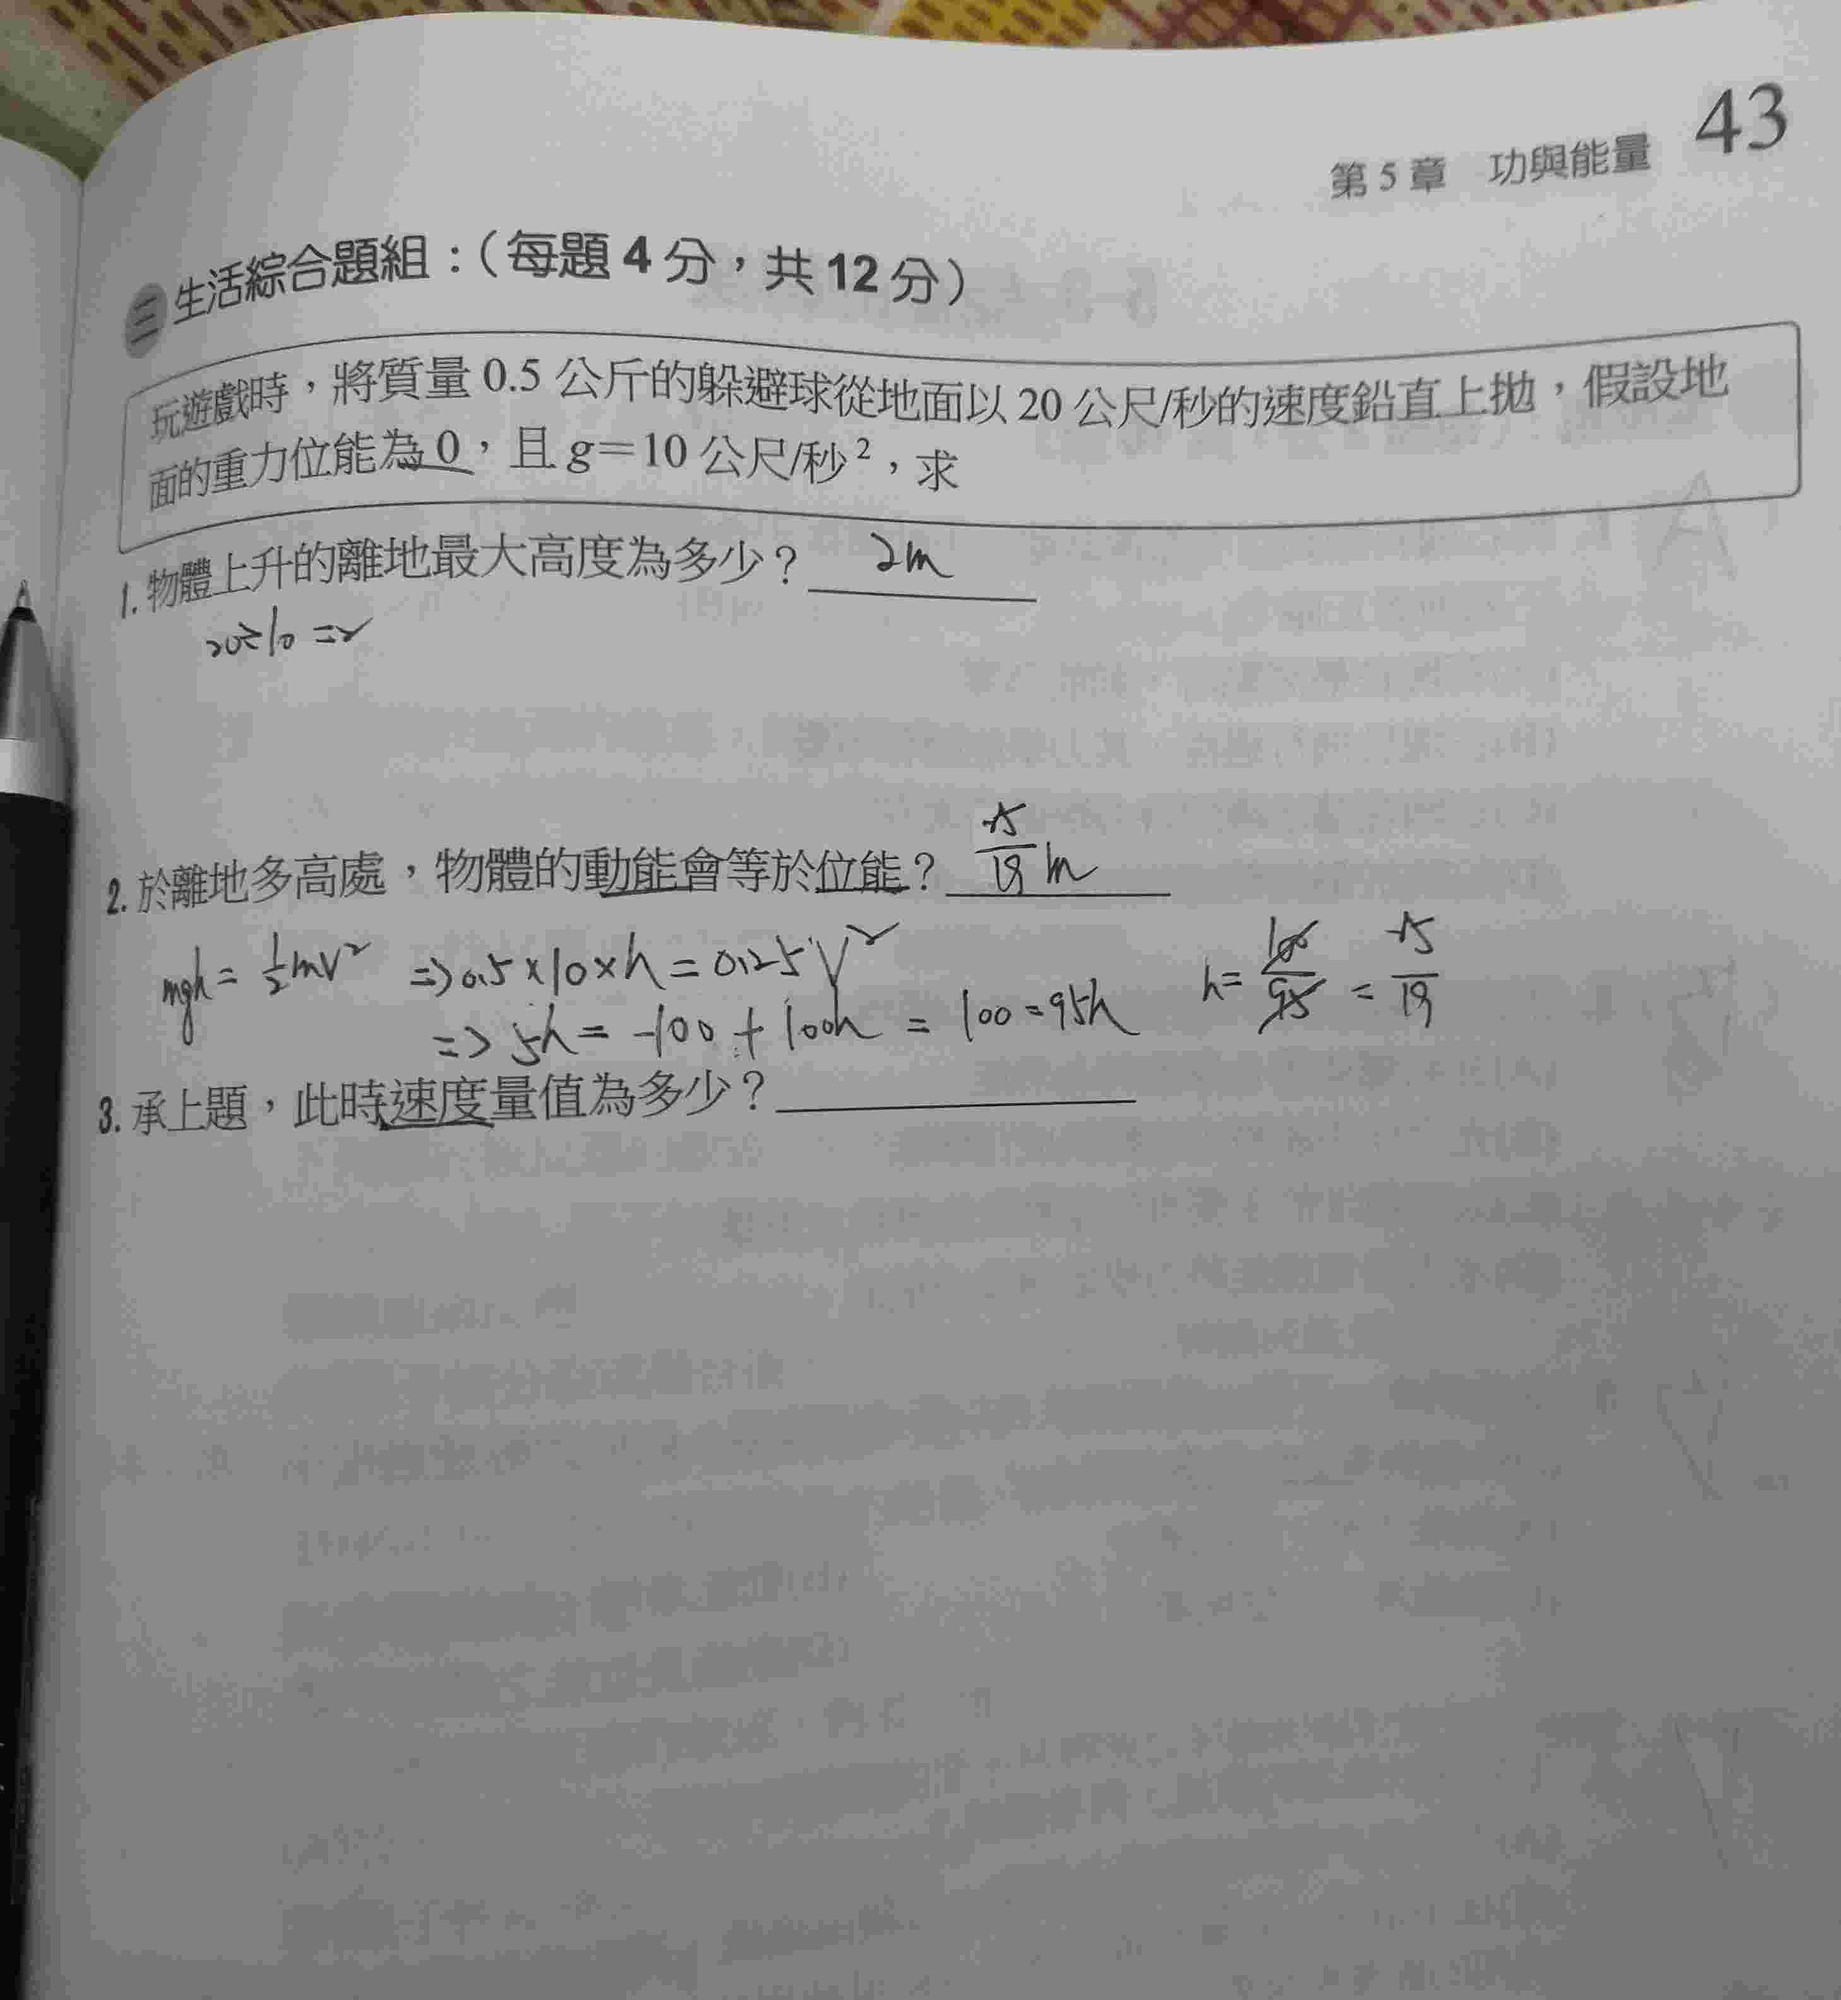 第5章 功與能量 43
三 生活綜合題組：（每題4分，共12分）
玩遊戲時，將質量0.5公斤的躲避球從地面以20公尺/秒的速度鉛直上拋，假設地
面的重力位能為0，且g＝10公尺/秒²，求
1. 物體上升的離地最大高度為多少？ 2m
20÷10=2
2. 於離地多高處，物體的動能會等於位能？
mgh = ½mv² => 0.5×10×h = 0.25V²
=> 5h = -100 + 100h = 100 = 95h
3. 承上題，此時速度量值為多少？